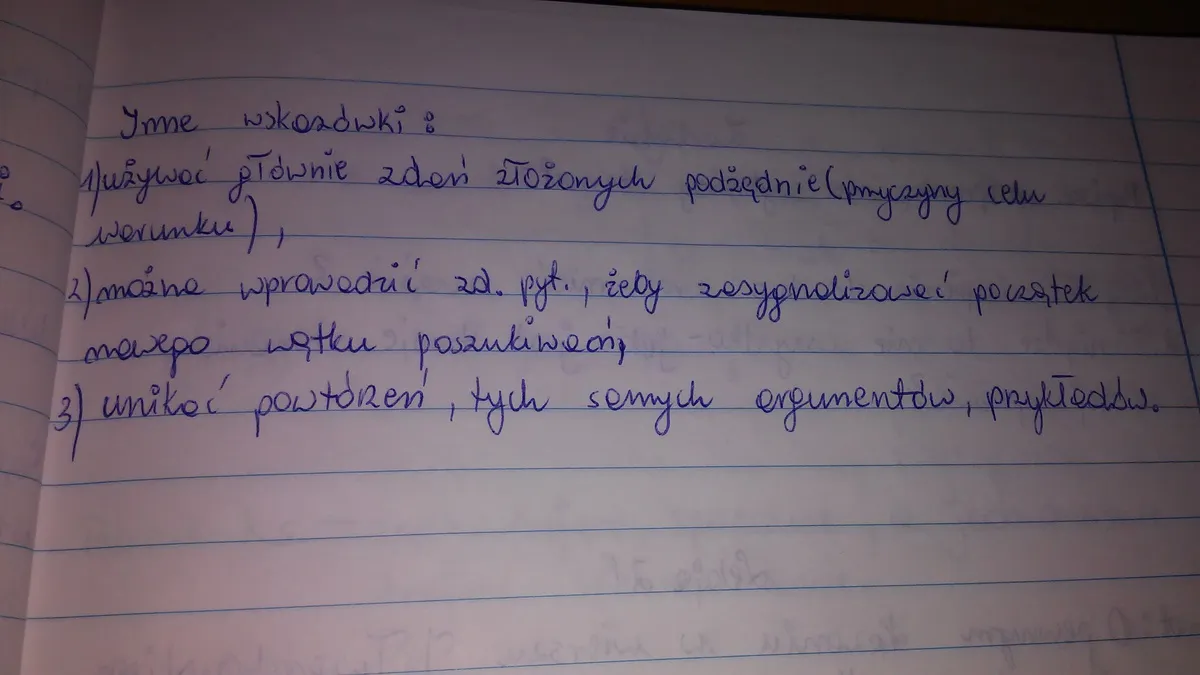 Inne wskazówki:
1) używać głównie zdań złożonych podżędnie (przyczyny celu
warunku),
2) można wprowadzić zd. pyt., żeby zasygnalizować początek
nowego wątku poszukiwań,
3) unikać powtórzeń, tych samych argumentów, przykładów.